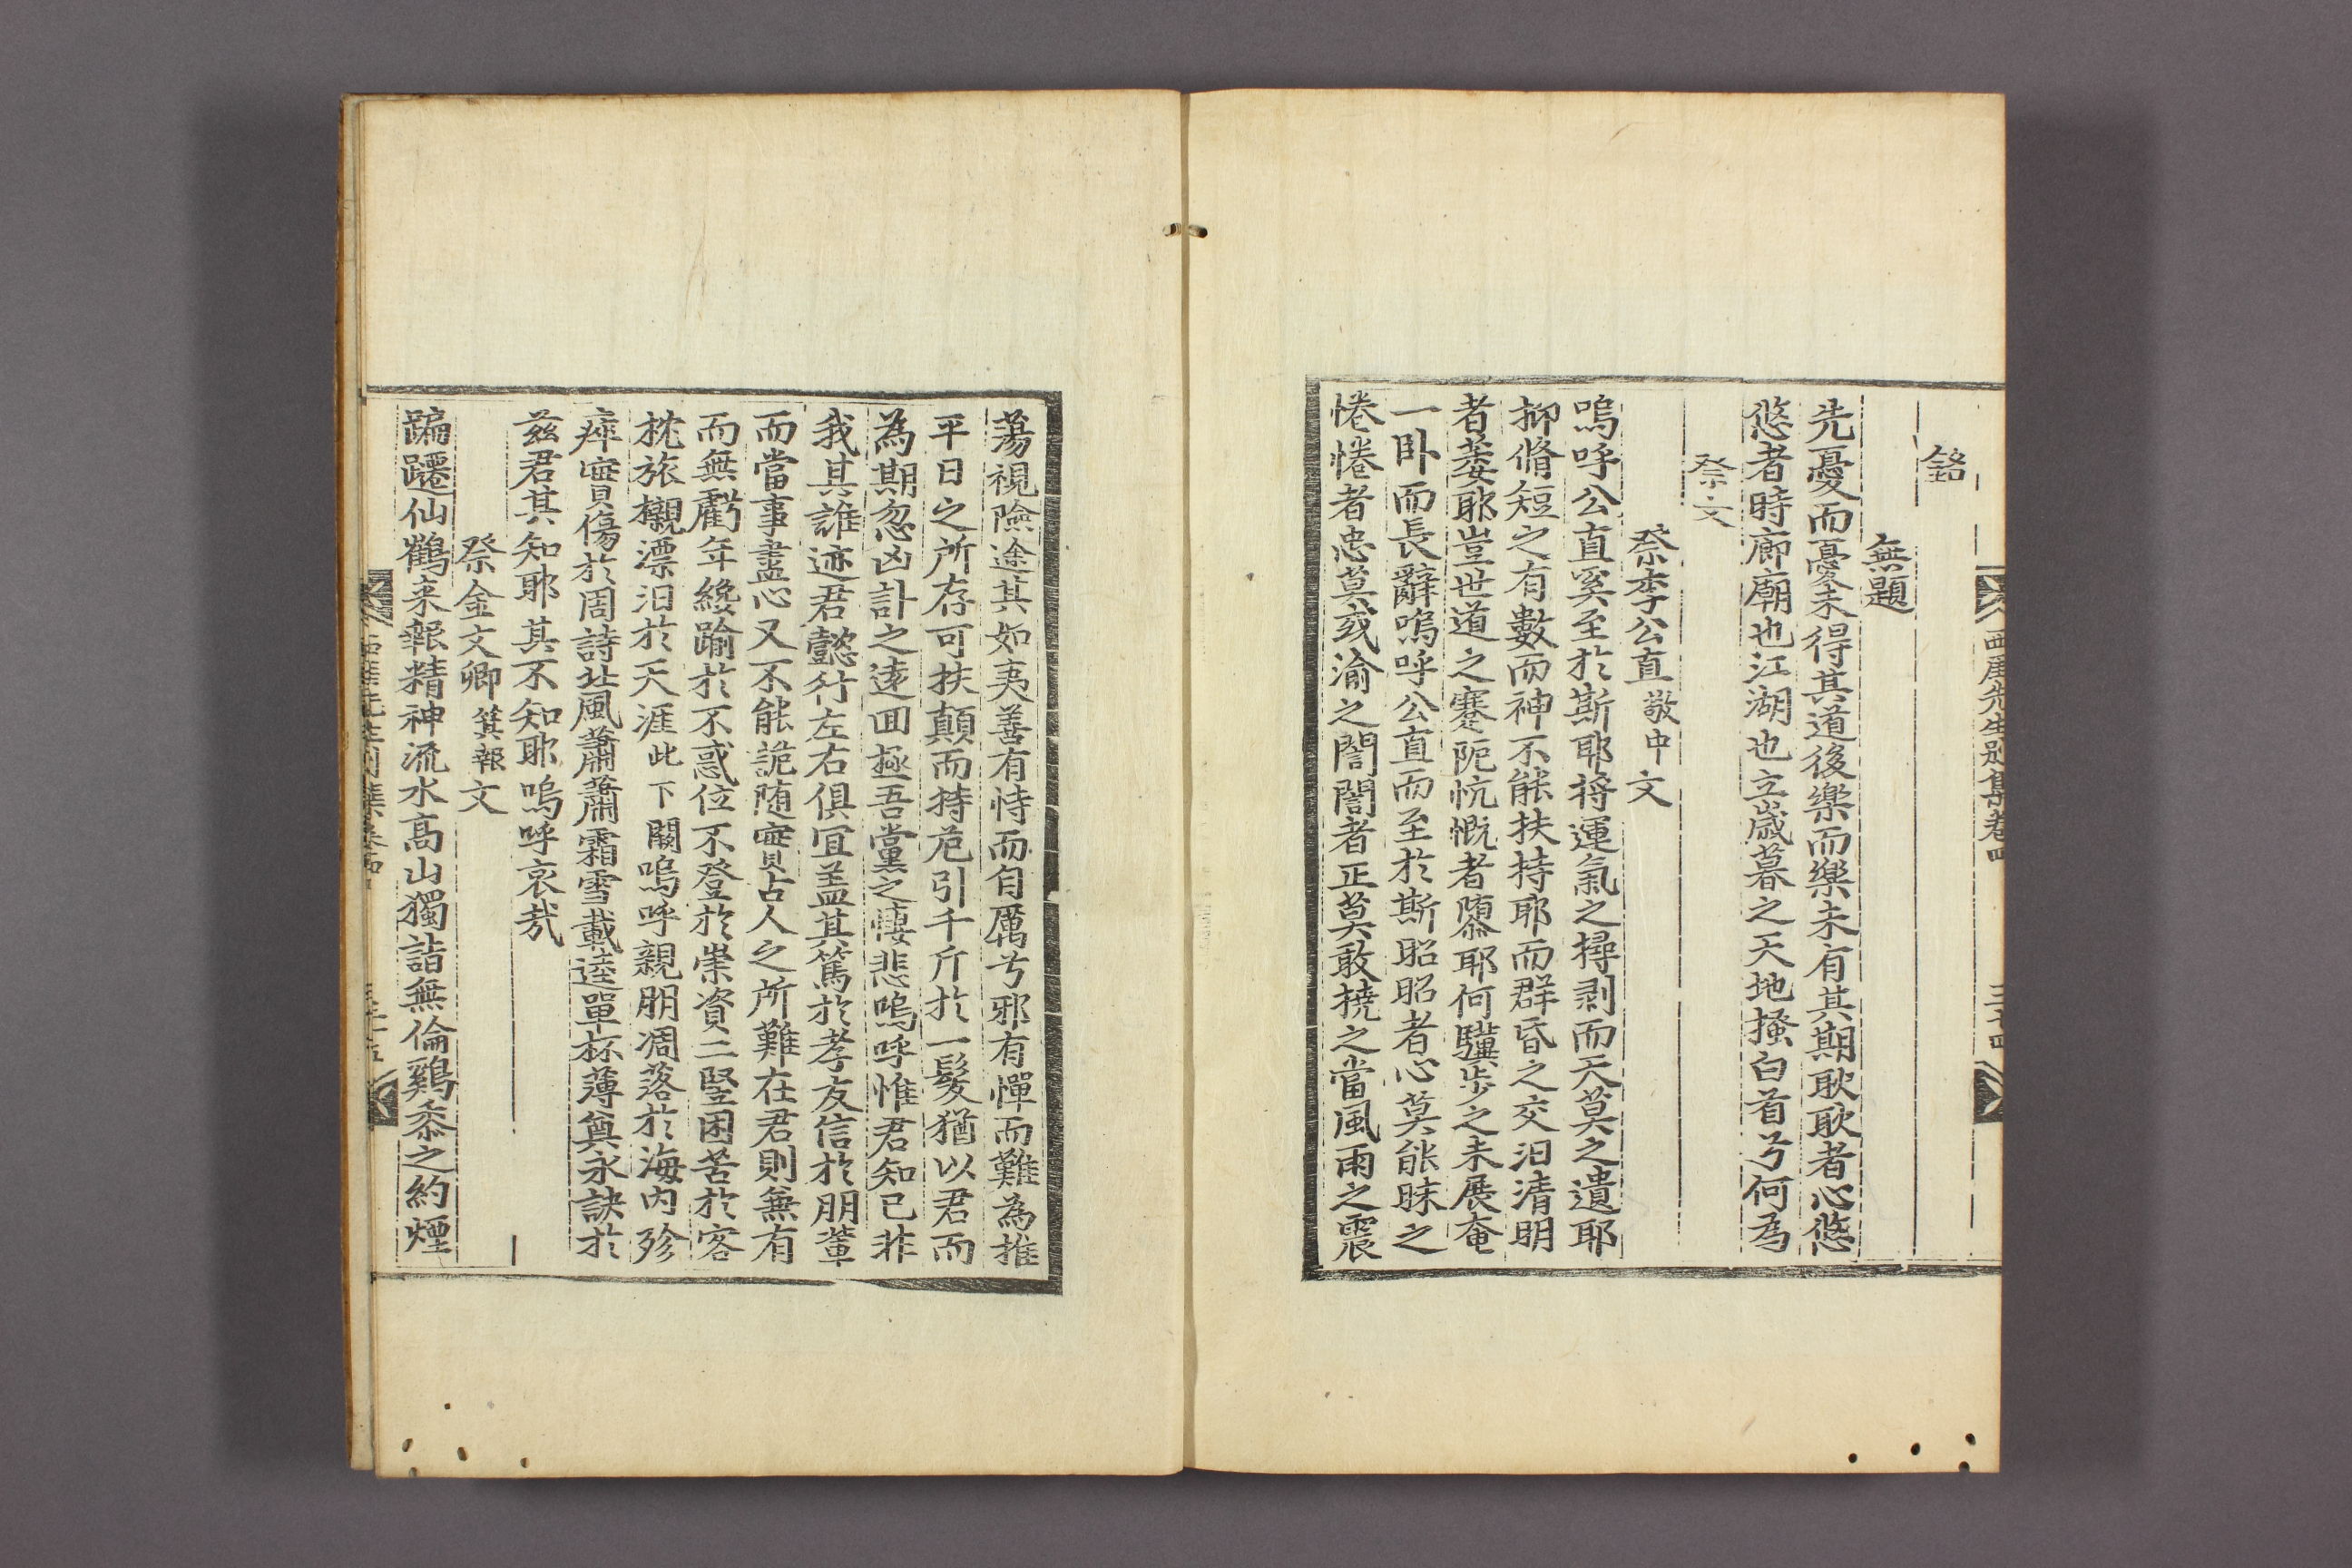 西厓先生別集卷四
三十四
銘
無題
先憂而憂未得其道後樂而樂未有其期耿耿者心悠
悠者時廊廟也江湖也立歲暮之天地搔白首兮何為
祭文
祭李公直敬中文
嗚呼公直奚至於斯耶將運氣之撏剥而天莫之遺耶
抑脩短之有數而神不能扶持耶而群昏之交汨清明
者萎耶豈世道之蹇阨忼慨者隳耶何驥步之未展奄
一卧而長辭嗚呼公直而至於斯昭昭者心莫能昧之
惓惓者忠莫或渝之誾誾者正莫敢撓之當風雨之震
蕩視險途其如夷善有恃而自厲兮邪有憚而難為推
平日之所存可扶顛而持危引千斤於一髮猶以君而
為期忽凶訃之遠囬極吾黨之悽悲嗚呼惟君知已非
我其誰迹君懿行左右俱冝盖其篤於孝友信於朋輩
而當事盡心又不能詭随寔古人之所難在君則兼有
而無虧年纔踰於不惑位不登於崇資二竪困苦於客
枕旅櫬漂汨於天涯此下闕嗚呼親朋凋落於海内殄
瘁寔傷於周詩北風蕭蕭霜雪載逵單杯薄奠永訣於
兹君其知耶其不知耶嗚呼哀哉
祭金文卿箕報文
蹁躚仙鶴来報精神流水高山獨詣無倫鷄黍之約煙